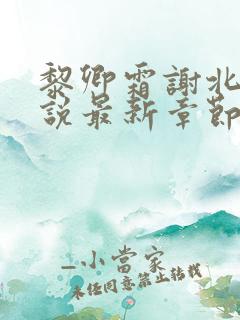 黎卿霜謝北
說最新章節
_小當家
未經同意禁止轉載